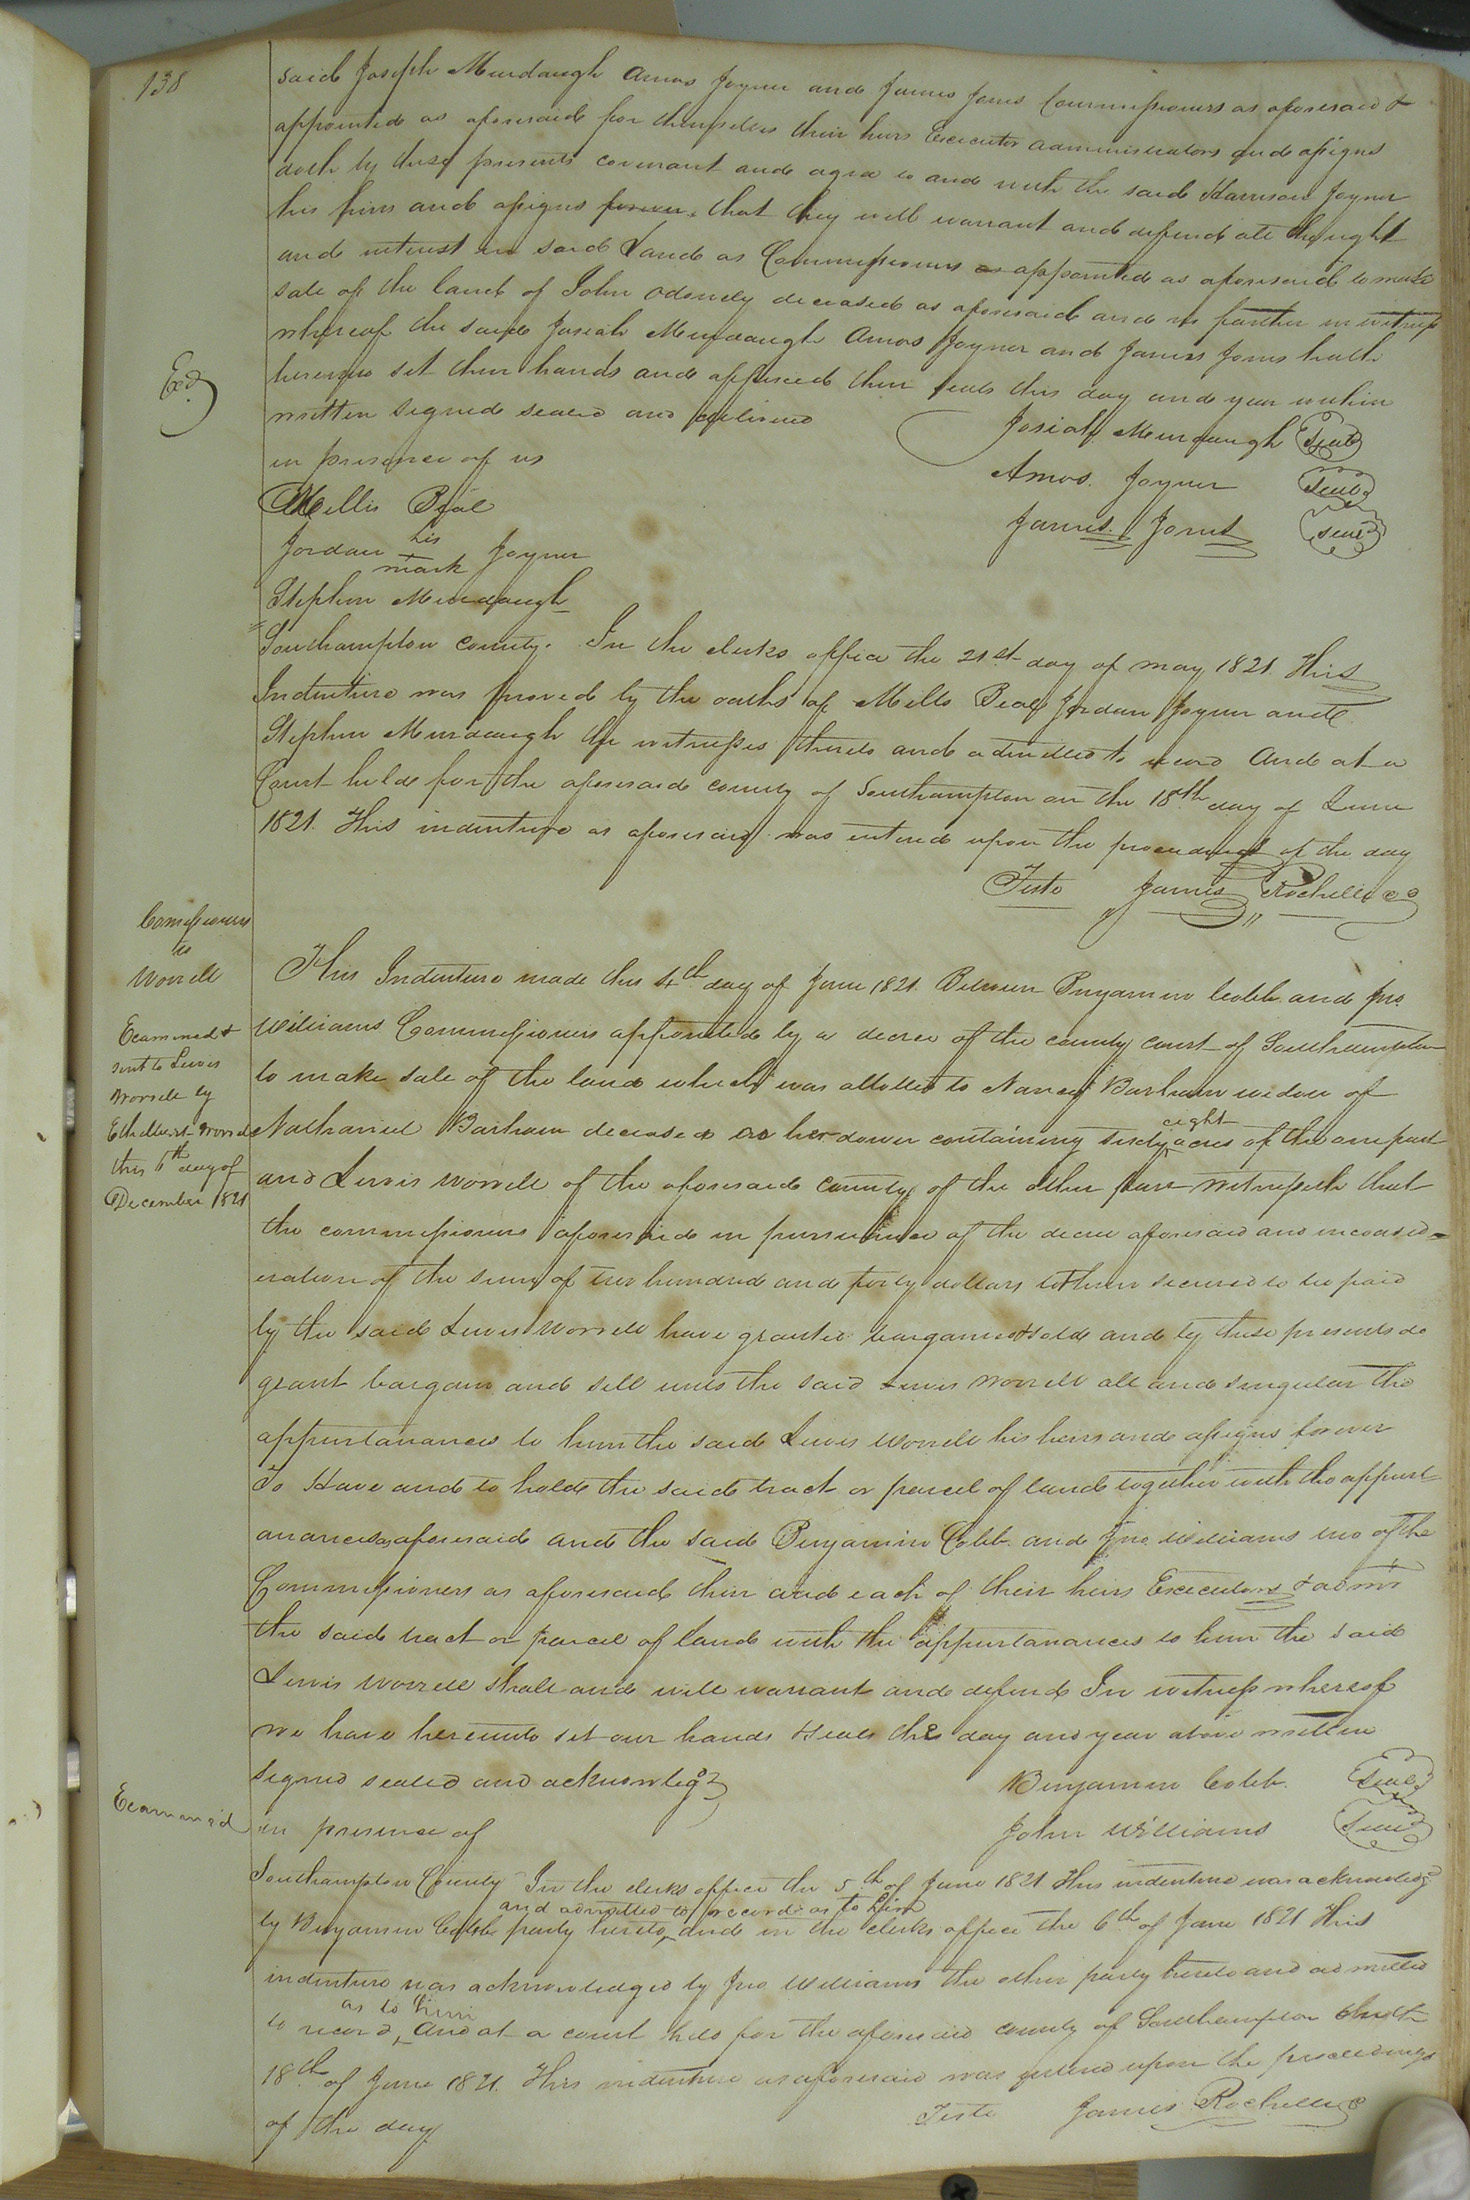 138
said Joseph Murdaugh Amos Joyner and James Jones Commissioners as aforesaid &
appointed as aforesaid for themselves their heirs Executor administrators and assigns
doth by these presents covenant and agree to and with the said Harrison Joyner
his heirs and assigns forever that they will warrant and defend all the right
and interest in said Land as Commissioners as appointed as aforesaid to make
sale of the land of John Odonely deceased as aforesaid and no farther in witness
whereof the said Josiah Murdaugh Amos Joyner and James Jones hath
hereunto set their hands and affixed their seals this day and year within
written signed sealed and delivered
in presence of us
Exd
Josiah Murdaugh Seal
Amos Joyner Seal
James Jones Seal
Mills Beal
Jordan his mark Joyner
Stephen Murdaugh
Southampton county. In the clerks office the 21st day of may 1821 This
Indenture was proved by the oaths of Mills Beal Jordan Joyner and
Stephen Murdaugh the witnesses thereto and admitted to record And at a
Court held for the aforesaid county of Southampton on the 18th day of June
1821. This indenture as aforesaid was entered upon the proceedings of the day
Teste James Rochelle cc
Comissioners
to
Worrell
Examined &
sent to Lewis
Worrell by
Etheldred Worrell
this 6th day of
December 1821
This Indenture made this 4th day of June 1821. Between Benjamin Cobb and Jno.
Williams Commissioners appointed by a decree of the county court of Southampton
to make sale of the land which was allotted to Nancy Barham widow of
Nathaniel Barham deceased as her dower containing sixty eight acres of the one part
and Lewis Worrell of the aforesaid county of the other part witnesseth that
the commissioners aforesaid in pursuance of the decree aforesaid and in consid=
eration of the sum of two hundred and forty dollars to them secured to be paid
by the said Lewis Worrell have granted bargained & sold and by these presents do
grant bargain and sell unto the said Lewis Worrell all and singular the
appurtanances to him the said Lewis Worrell his heirs and assigns forever
To Have and to hold the said tract or parcel of land together with the appurt
anances as aforesaid and the said Benjamin Cobb and Jno. Williams two of the
Commissioners as aforesaid their and each of their heirs Executors & admrs
the said tract or parcel of land with the appurtanances to him the said
Lewis Worrell shall and will warrant and defend In witness whereof
we have hereunto set our hands & seals the day and year above written
Signed sealed and acknowledgd
in presence of
Benjamin Cobb. Seal
John Williams Seal
Examined
Southampton County In the clerks office the 5th of June 1821 This indenture was acknowledgd
by Benjamin Cobb party hereto, and admitted to record as to him and in the clerks office the 6th of June 1821 This
indenture was acknowledged by Jno Williams the other party hereto and admitted
to record, as to him And at a court held for the aforesaid county of Southampton the
18th of June 1821. This indenture as aforesaid was entered upon the proceedings
of the day
Teste James Rochelle c